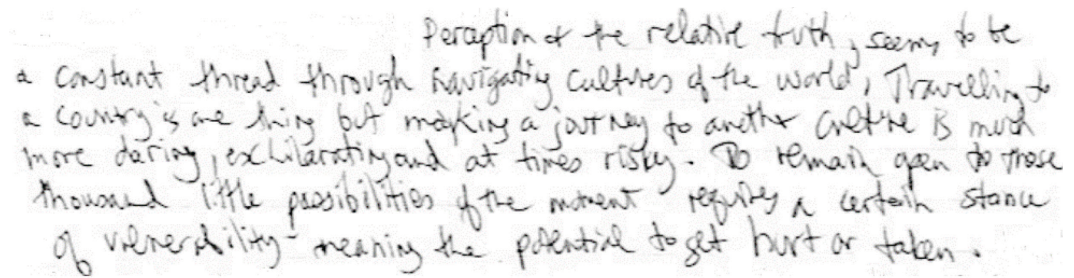 Perception of the relative truth, seems to be
a constant thread through navigating cultures of the world, Travelling to
a country is one thing but making a journey to another culture is much
more daring, exchilarating and at times risky. To remain open to those
thousand little possibilities of the moment requires a certain stance
of vulnerability - meaning the potential to get hurt or taken.